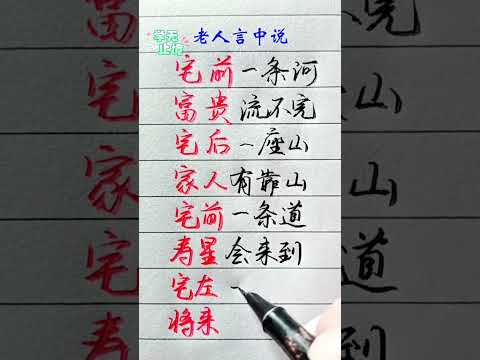 学无
止境
老人言中说
宅前一条河
富贵流不完
宅后一座山
家人有靠山
宅前一条道
寿星会来到
宅左一
将来